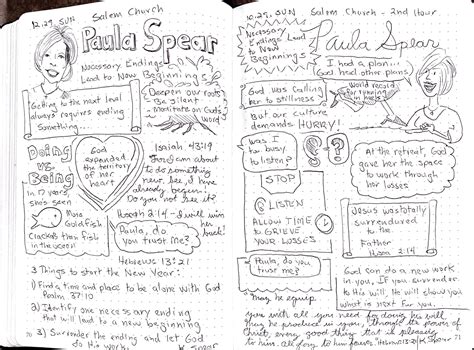 12.29. SUN
Salem Church
Paula Spear
Necessary Endings
Lead to New
Beginnings
Getting to the next level
always requires ending
something...
Deepen our roots
Be silent
Meditate on God's
Word
Doing
vs.
Being
In 17 years,
she's seen
God
expanded
the
territory of
her heart
Isaiah 43:19
God am about
to do something
new. See, I have
already begun!
Do you not see it?
More
Goldfish
Crackers than fish
in the ocean
Hosea 2:14 - I will win
her back
Paula, do
you trust me?
Hebrews 13:21
3 Things to start the New Year:
1) Find a time and place to be alone with God
Psalm 37:10
2) Identify one necessary ending
that will lead to a new
beginning
3) Surrender the ending and let God
work
K Spear
70
10.29. SUN
Salem Church - 2nd Hour
Necessary
Endings Lead
to New
Beginnings
Paula Spear
I had a plan...
God had other plans
World record
for running
in heels
God was calling
her to stillness
But our culture
demands HURRY!
was I
too busy
to listen?
? ?
At the retreat, God
gave her the space
to work through
her losses
STOP
LISTEN
ALLOW TIME
TO GRIEVE
YOUR LOSSES
Jesus was totally
surrendered to
the
Father
Hosea 2:14
Paula, do you
trust me?
God can do a new work
in you. If you surrender
to His will, He will show you
what is next for you.
may he equip
you with all you need for doing his will
may he produce in you, through the power of
Christ, every good thing that is pleasing
to him. All glory to him forever. Hebrews 13:21
K Spear 71